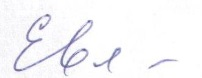 Евл -